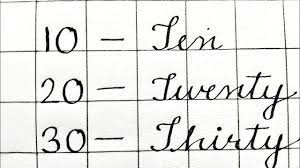 10 — Ten
20 — Twenty
30 — Thirty